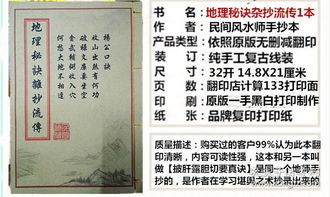 地理秘訣雜抄流傳
楊公口訣
收山出煞有何功
破祿文廉要生空
貪武輔弼收入穴
何愁大地不相逢
书　　名：地理秘诀杂抄流传1本
作　　者：民间风水师手抄本
产品类型：依照原版无删减翻印
装　　订：纯手工复古线装
尺　　寸：32开 14.8X21厘米
页　　数：翻印店计算133打印面
印　　刷：原版一手黑白打印制作
纸　　张：品牌复印打印纸
质量描述：购买过的客户99%认为此本翻
印清晰，内容可读性强，这本和另一本叫
做【披肝露胆切要真诀】是同一个地师手
抄的，是作者在学习堪舆艺术抄录出来的